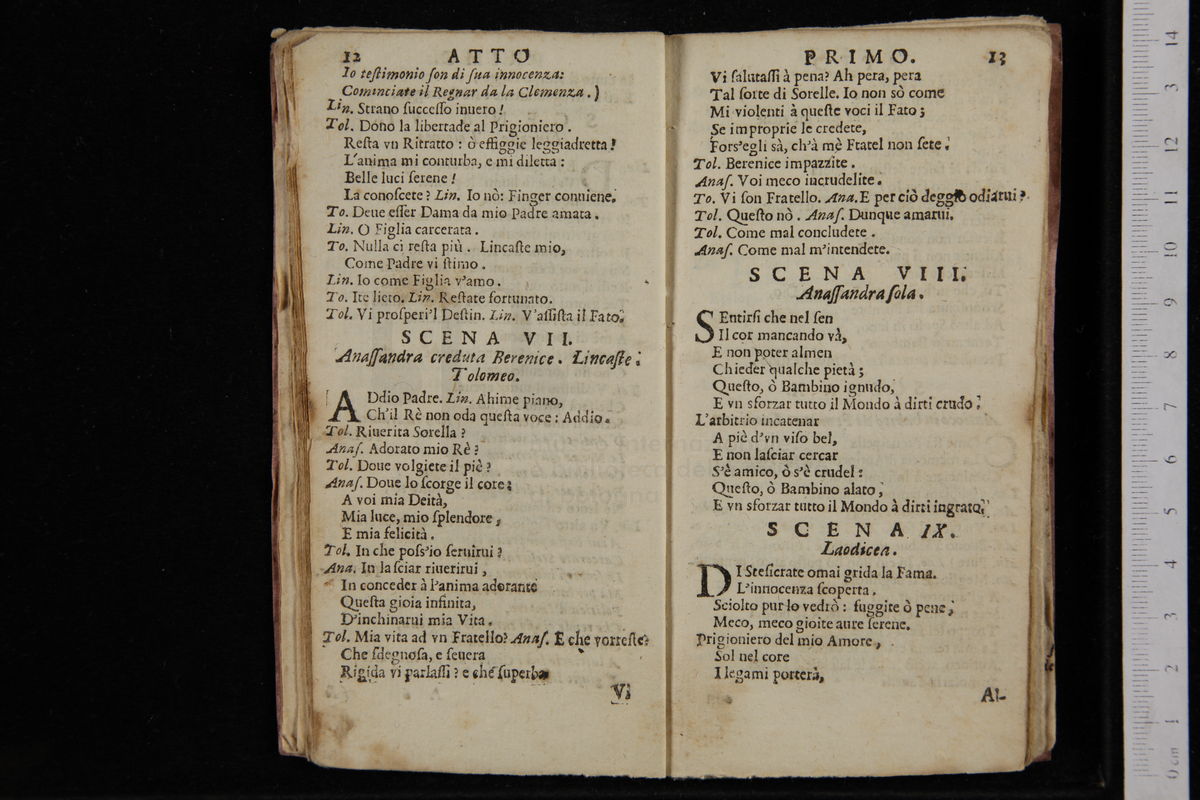 12 ATTO
Io teſtimonio ſon di ſua innocenza:
Cominciate il Regnar da la Clemenza.)
Lin. Strano ſucceſſo inuero!
Tol. Dono la libertade al Prigioniero.
Reſta vn Ritratto: ò effiggie leggiadretta!
L'anima mi conturba, e mi diletta:
Belle luci ſerene!
La conoſcete? Lin. Io nò: Finger conuiene.
To. Deue eſſer Dama da mio Padre amata.
Lin. O Figlia carcerata.
To. Nulla ci reſta più. Lincaſte mio,
Come Padre vi ſtimo.
Lin. Io come Figlia v'amo.
To. Ite lieto. Lin. Reſtate fortunato.
Tol. Vi proſperi'l Deſtin. Lin. V'aſſiſta il Fato.
SCENA VII.
Anaſſandra creduta Berenice. Lincaſte.
Tolomeo.
ADdio Padre. Lin. Ahime piano,
Ch'il Rè non oda queſta voce: Addio.
Tol. Riuerita Sorella?
Anaſ. Adorato mio Rè?
Tol. Doue volgiete il piè?
Anaſ. Doue lo ſcorge il core:
A voi mia Deità,
Mia luce, mio ſplendore,
E mia felicità.
Tol. In che poſs'io ſeruirui?
Ana. In laſciar riuerirui,
In conceder à l'anima adorante
Queſta gioia infinita,
D'inchinarui mia Vita.
Tol. Mia vita ad vn Fratello? Anaſ. E che vorreſte?
Che ſdegnoſa, e ſeuera
Rigida vi parlaſſi? e che ſuperba
Vi
PRIMO. 13
Vi ſalutaſſi à pena? Ah pera, pera
Tal ſorte di Sorelle. Io non sò come
Mi violenti à queſte voci il Fato;
Se improprie le credete,
Fors'egli sà, ch'à mè Fratel non ſete.
Tol. Berenice impazzite.
Anaſ. Voi meco incrudelite.
To. Vi ſon Fratello. Ana. E per ciò deggio odiarui?
Tol. Queſto nò. Anaſ. Dunque amarui.
Tol. Come mal concludete.
Anaſ. Come mal m'intendete.
SCENA VIII.
Anaſſandra ſola.
SEntirſi che nel ſen
Il cor mancando và,
E non poter almen
Chieder qualche pietà;
Queſto, ò Bambino ignudo,
E vn sforzar tutto il Mondo à dirti crudo.
L'arbitrio incatenar
A piè d'vn viſo bel,
E non laſciar cercar
S'è amico, ò s'è crudel:
Queſto, ò Bambino alato,
E vn sforzar tutto il Mondo à dirti ingrato.
SCENA IX.
Laodicea.
DI Steſicrate omai grida la Fama.
L'innocenza ſcoperta.
Sciolto pur lo vedrò: fuggite ò pene,
Meco, meco gioite aure ſerene.
Prigioniero del mio Amore,
Sol nel core
I legami porterà,
Al-